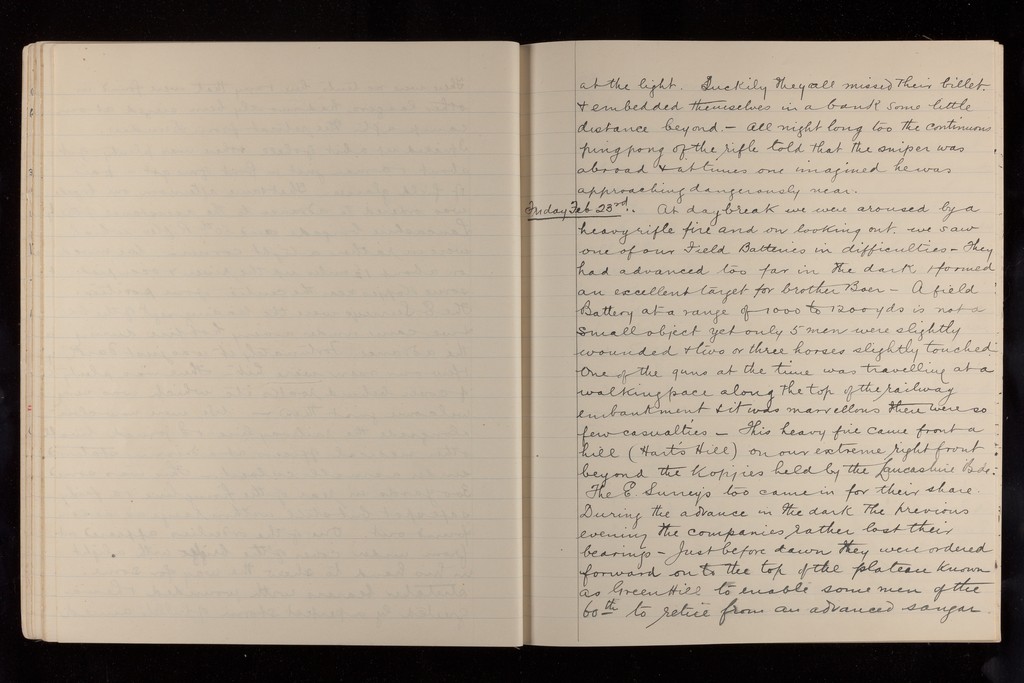 at the light. Luckily they all missed their billet
& embedded themselves in a bank some little
distance beyond. - All night long too the continuous
ping pong of the rifle told that the sniper was
abroad & at times one imagined he was
approaching dangerously near.
Friday Feb 23rd. At daybreak we were aroused by a
heavy rifle fire and on looking out, we saw
one of our Field Batteries in difficulties - They
had advanced too far in the dark & formed
an excellent target for brother Boer - A field
Battery at a range of 1000 to 1200 yds is not a
small object yet only 5 men were slightly
wounded & two or three horses slightly touched.
One of the guns at the time was travelling at a
walking pace along the top of the railway
embankment & it was marvellous there were so
few casualties - This heavy fire came from a
hill (Hart's Hill) on our extreme right front
beyond the Kopjies held by the Lancashire Bde.
The E. Surreys too came in for their share.
During the advance in the dark the previous
evening the companies rather lost their
bearings - Just before dawn they were ordered
forward on to the top of the plateau known
as Green Hill to enable some men of the
60th to retire from an advanced sangar